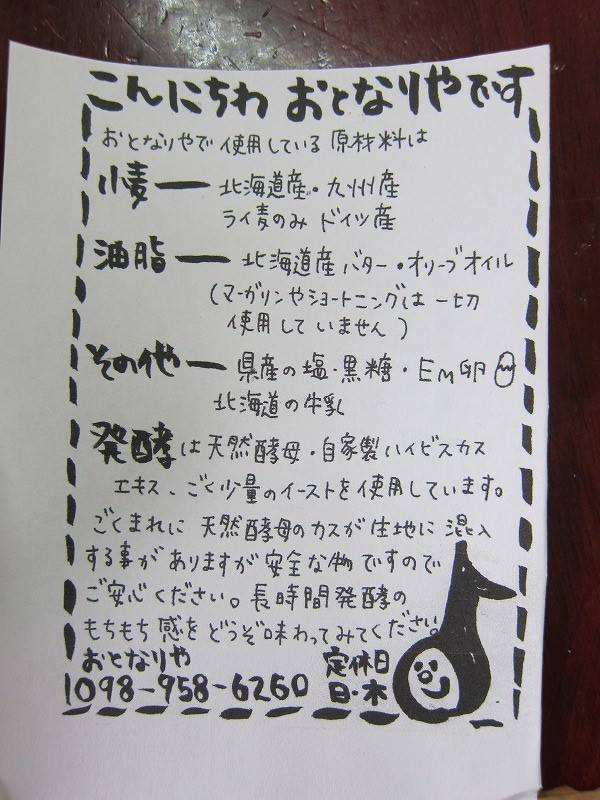 こんにちわ おとなりやです
おとなりやで使用している原材料は
小麦ー北海道産・九州産
ライ麦のみドイツ産
油脂ー北海道産バター・オリーブオイル
(マーガリンやショートニングは一切
使用していません)
その他ー県産の塩・黒糖・EM卵
北海道の牛乳
発酵は天然酵母・自家製ハイビスカス
エキス、ごく少量のイーストを使用しています。
ごくまれに天然酵母のカスが生地に混入
する事がありますが安全な物ですので
ご安心ください。長時間発酵の
もちもち感をどうぞ味わってみてください。
おとなりや 定休日
098-958-6260 日・木